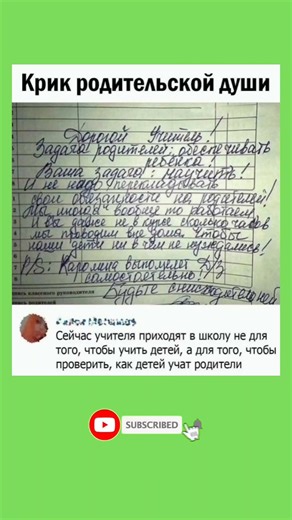 Крик родительской души
Дорогой Учитель!
Задача родителей: обеспечивать
ребёнка!
Ваша задача: научить!
И не надо перекладывать
свои обязанности на родителей!
Мы иногда вообще-то работаем
И вы даже не в курсе сколько часов
мы проводим вне дома, чтобы
наши дети ни в чём не нуждались!
P/S: Каролина выполняет Д/З
самостоятельно!
Будьте внимательной
пись классного руководителя
Сейчас учителя приходят в школу не для
того, чтобы учить детей, а для того, чтобы
проверить, как детей учат родители
SUBSCRIBED